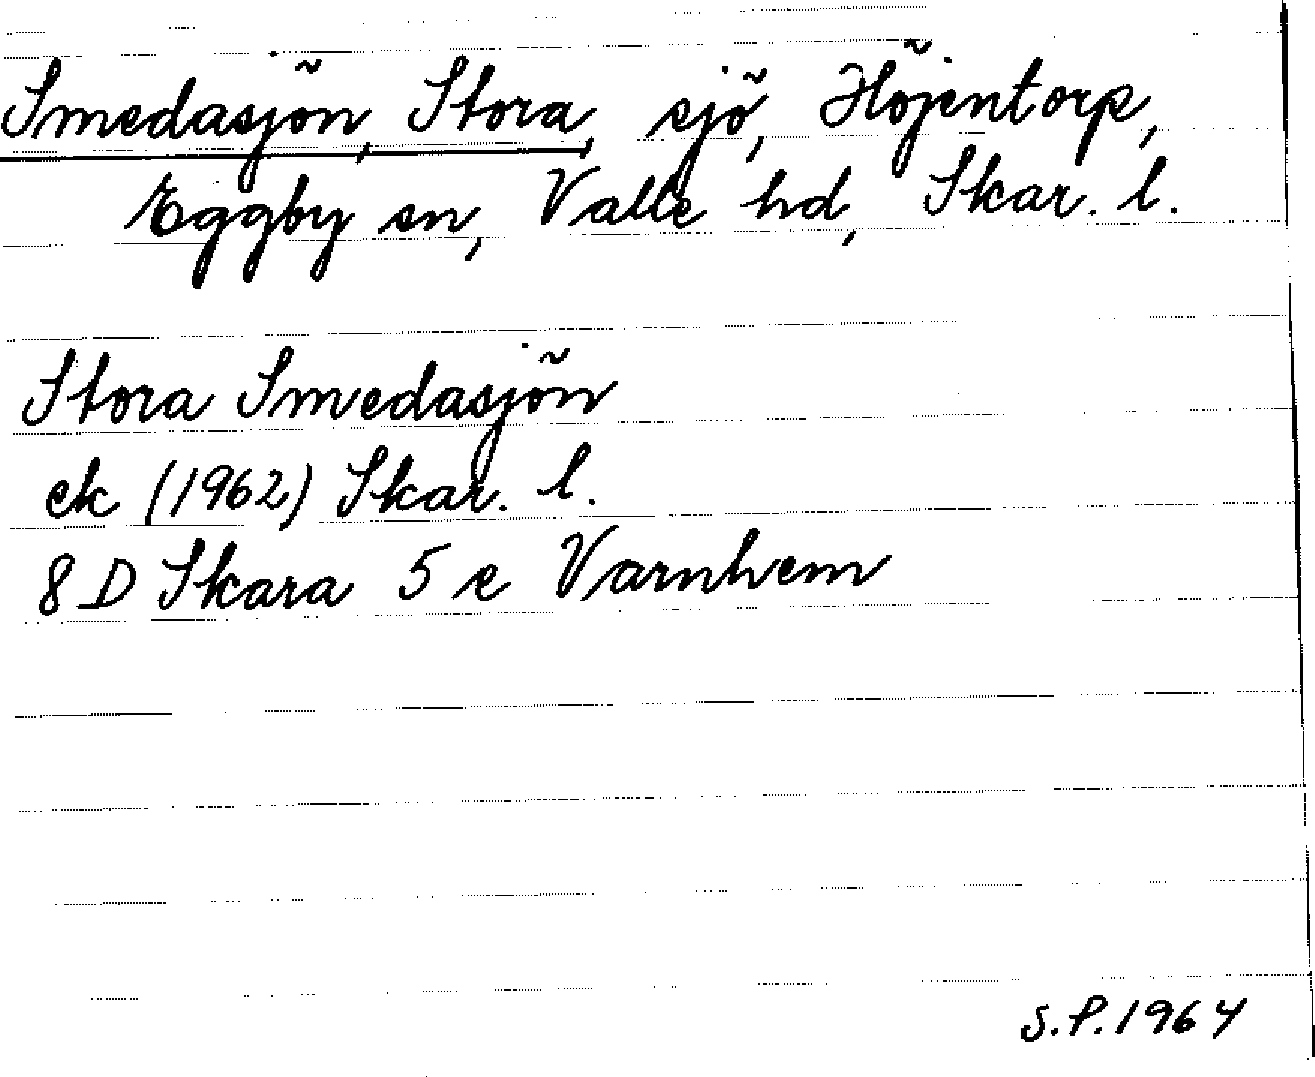 Smedasjön, Stora, sjö, Höjentorp,
Eggby sn, Valle hd, Skar. l.
Stora Smedasjön
ek (1962) Skar. l.
8 D Skara 5 e Varnhem
S.P. 1964